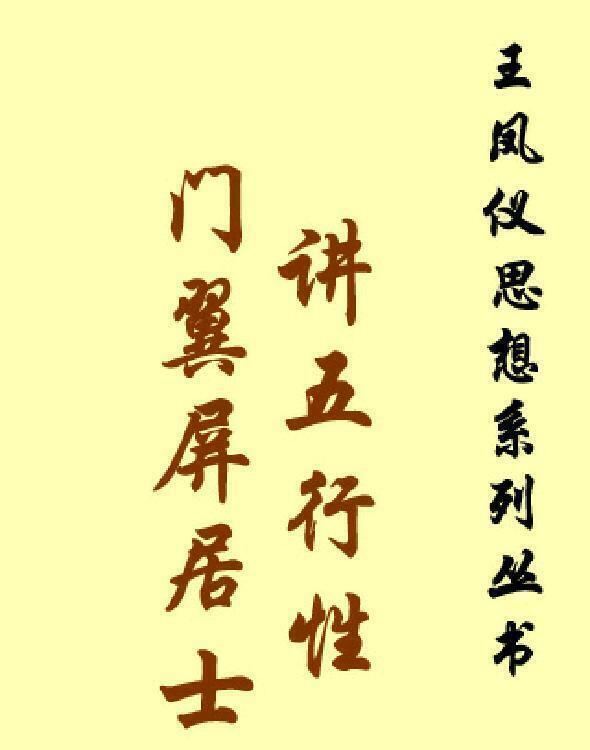 王凤仪思想系列丛书
门翼屏居士
讲五行性